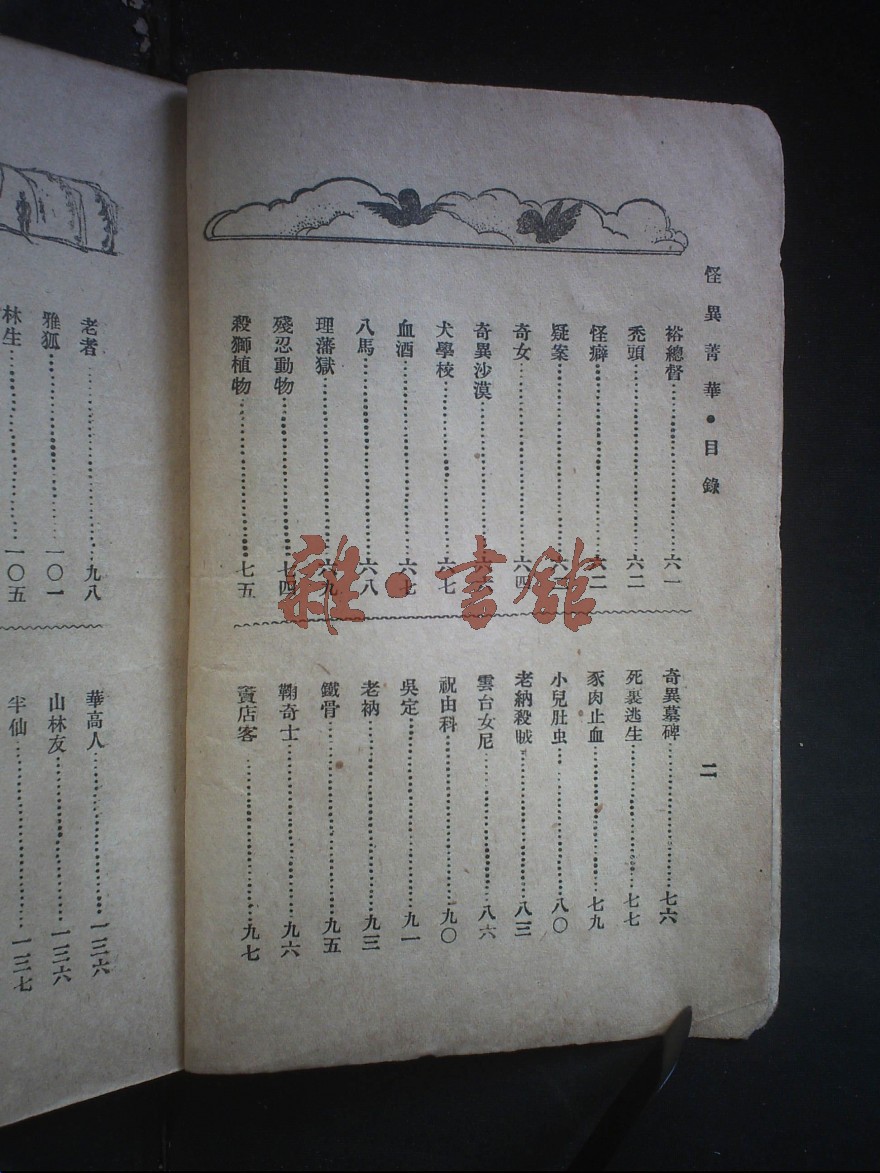 怪異菁華●目錄
二
裕總督……六一
禿頭……六二
怪癖……六二
疑案……六三
奇女……六四
奇異沙漠……六六
犬學校……六七
血酒……六七
八馬……六八
理藩獄……六九
殘忍動物……七四
殺獅植物……七五
奇異墓碑……七六
死裏逃生……七七
豕肉止血……七九
小兒肚虫……八〇
老納殺賊……八三
雲台女尼……八六
祝由科……九〇
吳定……九一
老衲……九三
鐵骨……九五
鞠奇士……九六
賣店客……九七
老者……九八
雅狐……一〇一
林生……一〇五
華高人……一三六
山林友……一三六
半仙……一三七
雜·書館